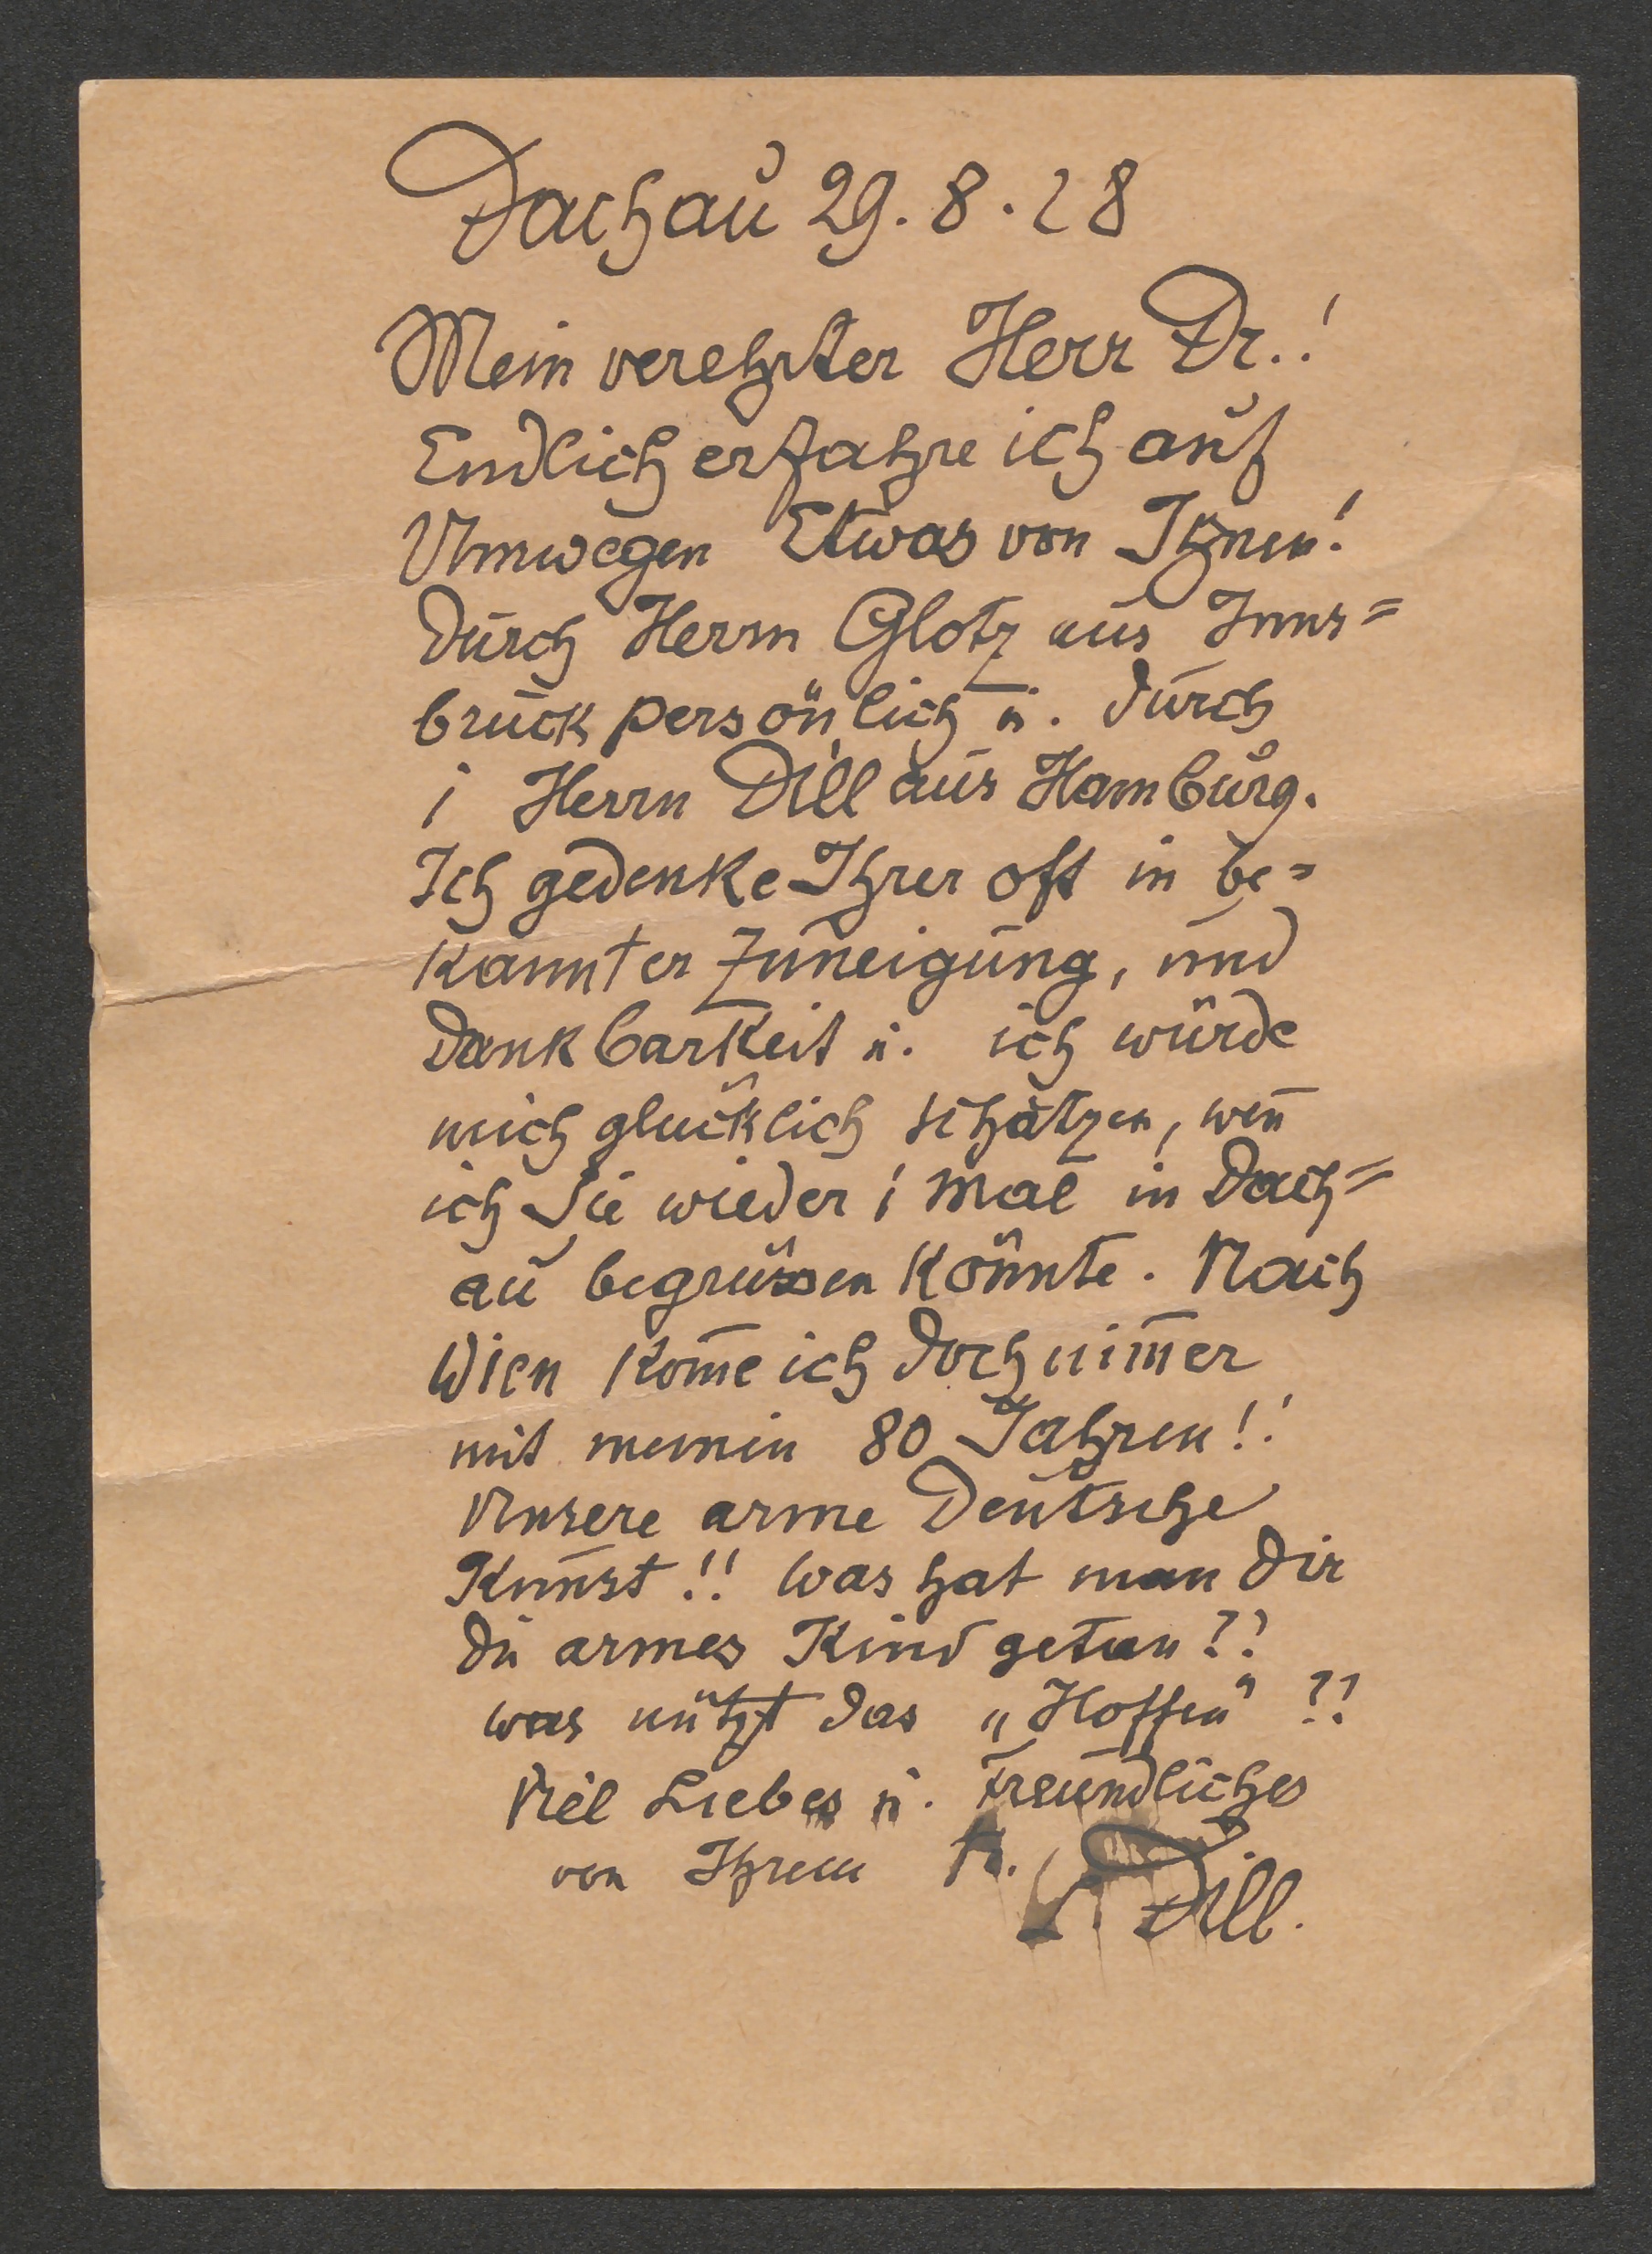 Dachau 29.8.28
Mein verehrter Herr Dr.!
Endlich erfahre ich auf
Umwegen Etwas von Ihnen!
durch Herrn Glotz aus Inns=
bruck persönlich u. durch
1 Herrn Dill aus Hamburg.
Ich gedenke Ihrer oft in be=
kannter Zuneigung, und
Dankbarkeit u. ich würde
mich glücklich schätzen, wen̄
ich Sie wieder 1 Mal in Dach=
au begrüssen könnte. Nach
Wien kom̄e ich doch nim̄er
mit meinen 80 Jahren!!
Unsere arme Deutsche
Kunst!! Was hat man dir
du armes Kind getan??
was nützt das „Hoffen" ?!
Viel Liebes u. Freundliches
von Ihrem
L. Dill.